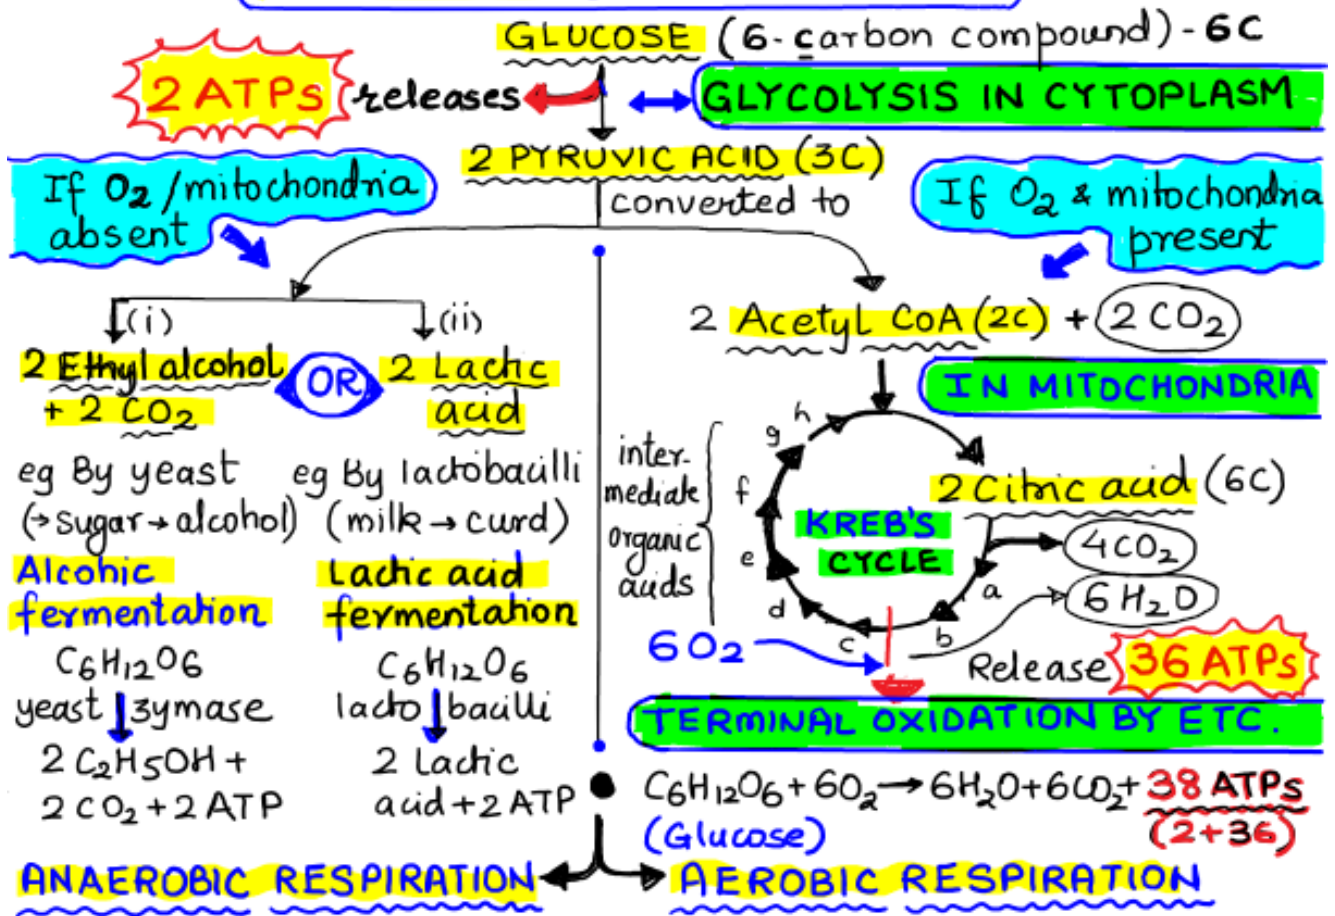 GLUCOSE (6-carbon compound) - 6C
2 ATPs releases
GLYCOLYSIS IN CYTOPLASM
2 PYRUVIC ACID (3C)
converted to
If O2/mitochondria
absent
If O2 & mitochondria
present
(i)
2 Ethyl alcohol
+ 2 CO2
OR
(ii)
2 Lactic
acid
eg By yeast
(→sugar→alcohol)
eg By lactobacilli
(milk → curd)
Alcohic
fermentation
Lactic acid
fermentation
C6H12O6
yeast ↓ zymase
2 C2H5OH +
2 CO2 + 2 ATP
C6H12O6
lacto ↓ bacilli
2 Lactic
acid + 2 ATP
2 Acetyl CoA (2C) + 2 CO2
IN MITOCHONDRIA
inter-
mediate
organic
acids
h
g
f
e
d
c
b
a
KREB'S
CYCLE
2 Citric acid (6C)
4CO2
6 H2O
6O2
Release 36 ATPs
TERMINAL OXIDATION BY ETC.
C6H12O6 + 6O2 → 6H2O + 6CO2 + 38 ATPs
(Glucose)
(2+36)
ANAEROBIC RESPIRATION
AEROBIC RESPIRATION